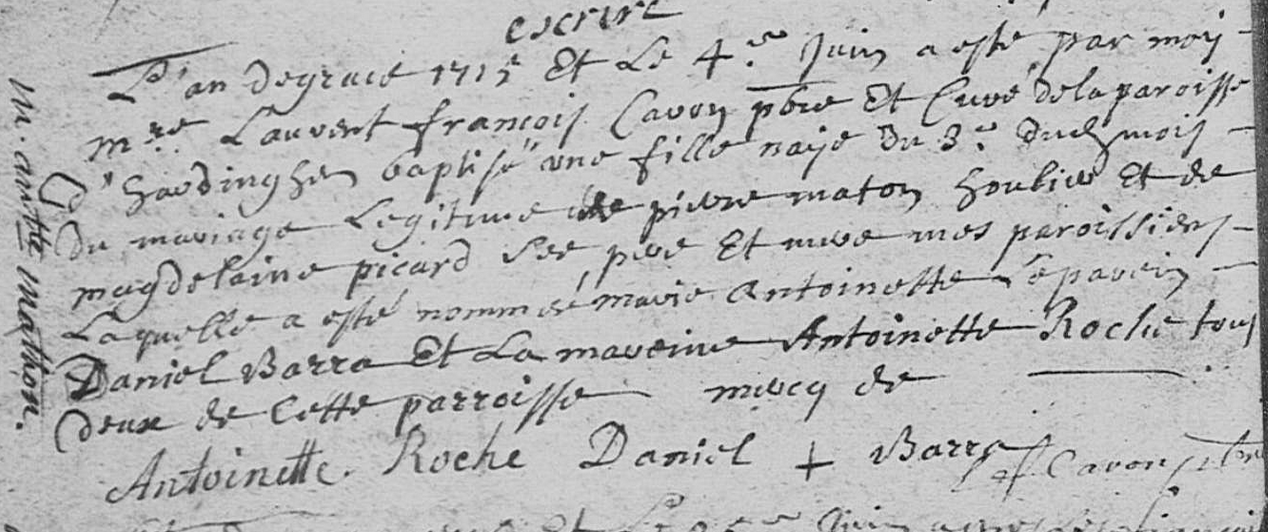 escrire
L'an de grace 1715 Et Le 4.e Juin a esté par moy
m.re Laurent francois Cavon pbre Et Curé de la paroisse
d'hardinghen baptisé une fille naÿe du 3.e dud mois
Du mariage Legitime de pierre maton houlieur Et de
magdelaine picard Ses pere Et mere mes paroissiens
Laquelle a esté nommée marie Antoinette Le parein
Daniel Barra Et La mareine Antoinette Roche tous
deux de Cette parroisse
Antoinette. Roche Daniel + Barra Cavon pbre
m. antte mathon.